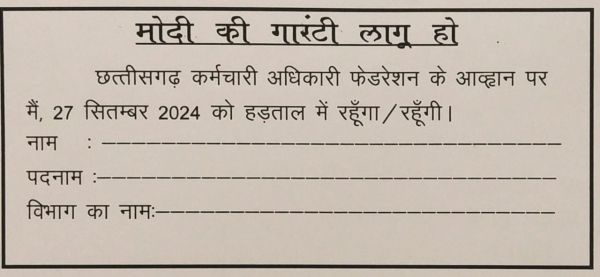 मोदी की गारंटी लागू हो
छत्तीसगढ़ कर्मचारी अधिकारी फेडरेशन के आव्हान पर
मैं, 27 सितम्बर 2024 को हड़ताल में रहूँगा/रहूँगी।
नाम : ---------------------------------
पदनाम :---------------------------------
विभाग का नामः-----------------------------